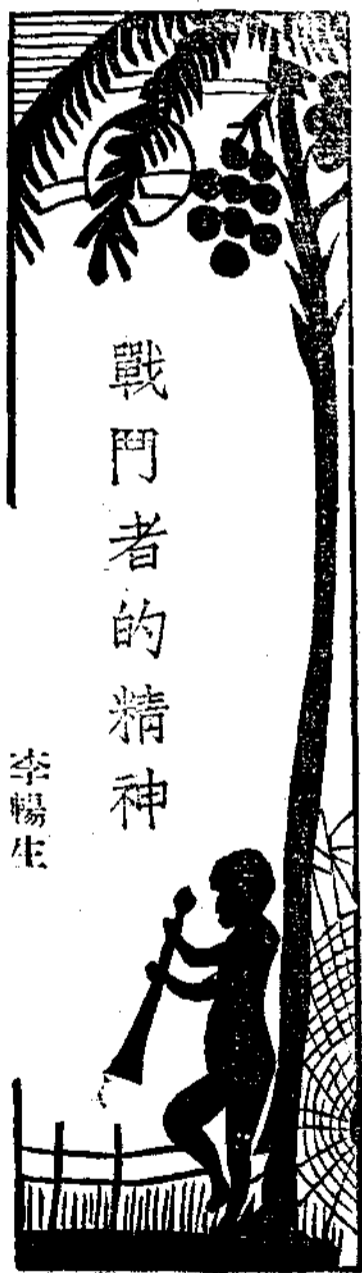 戰鬥者的精神
李暢生